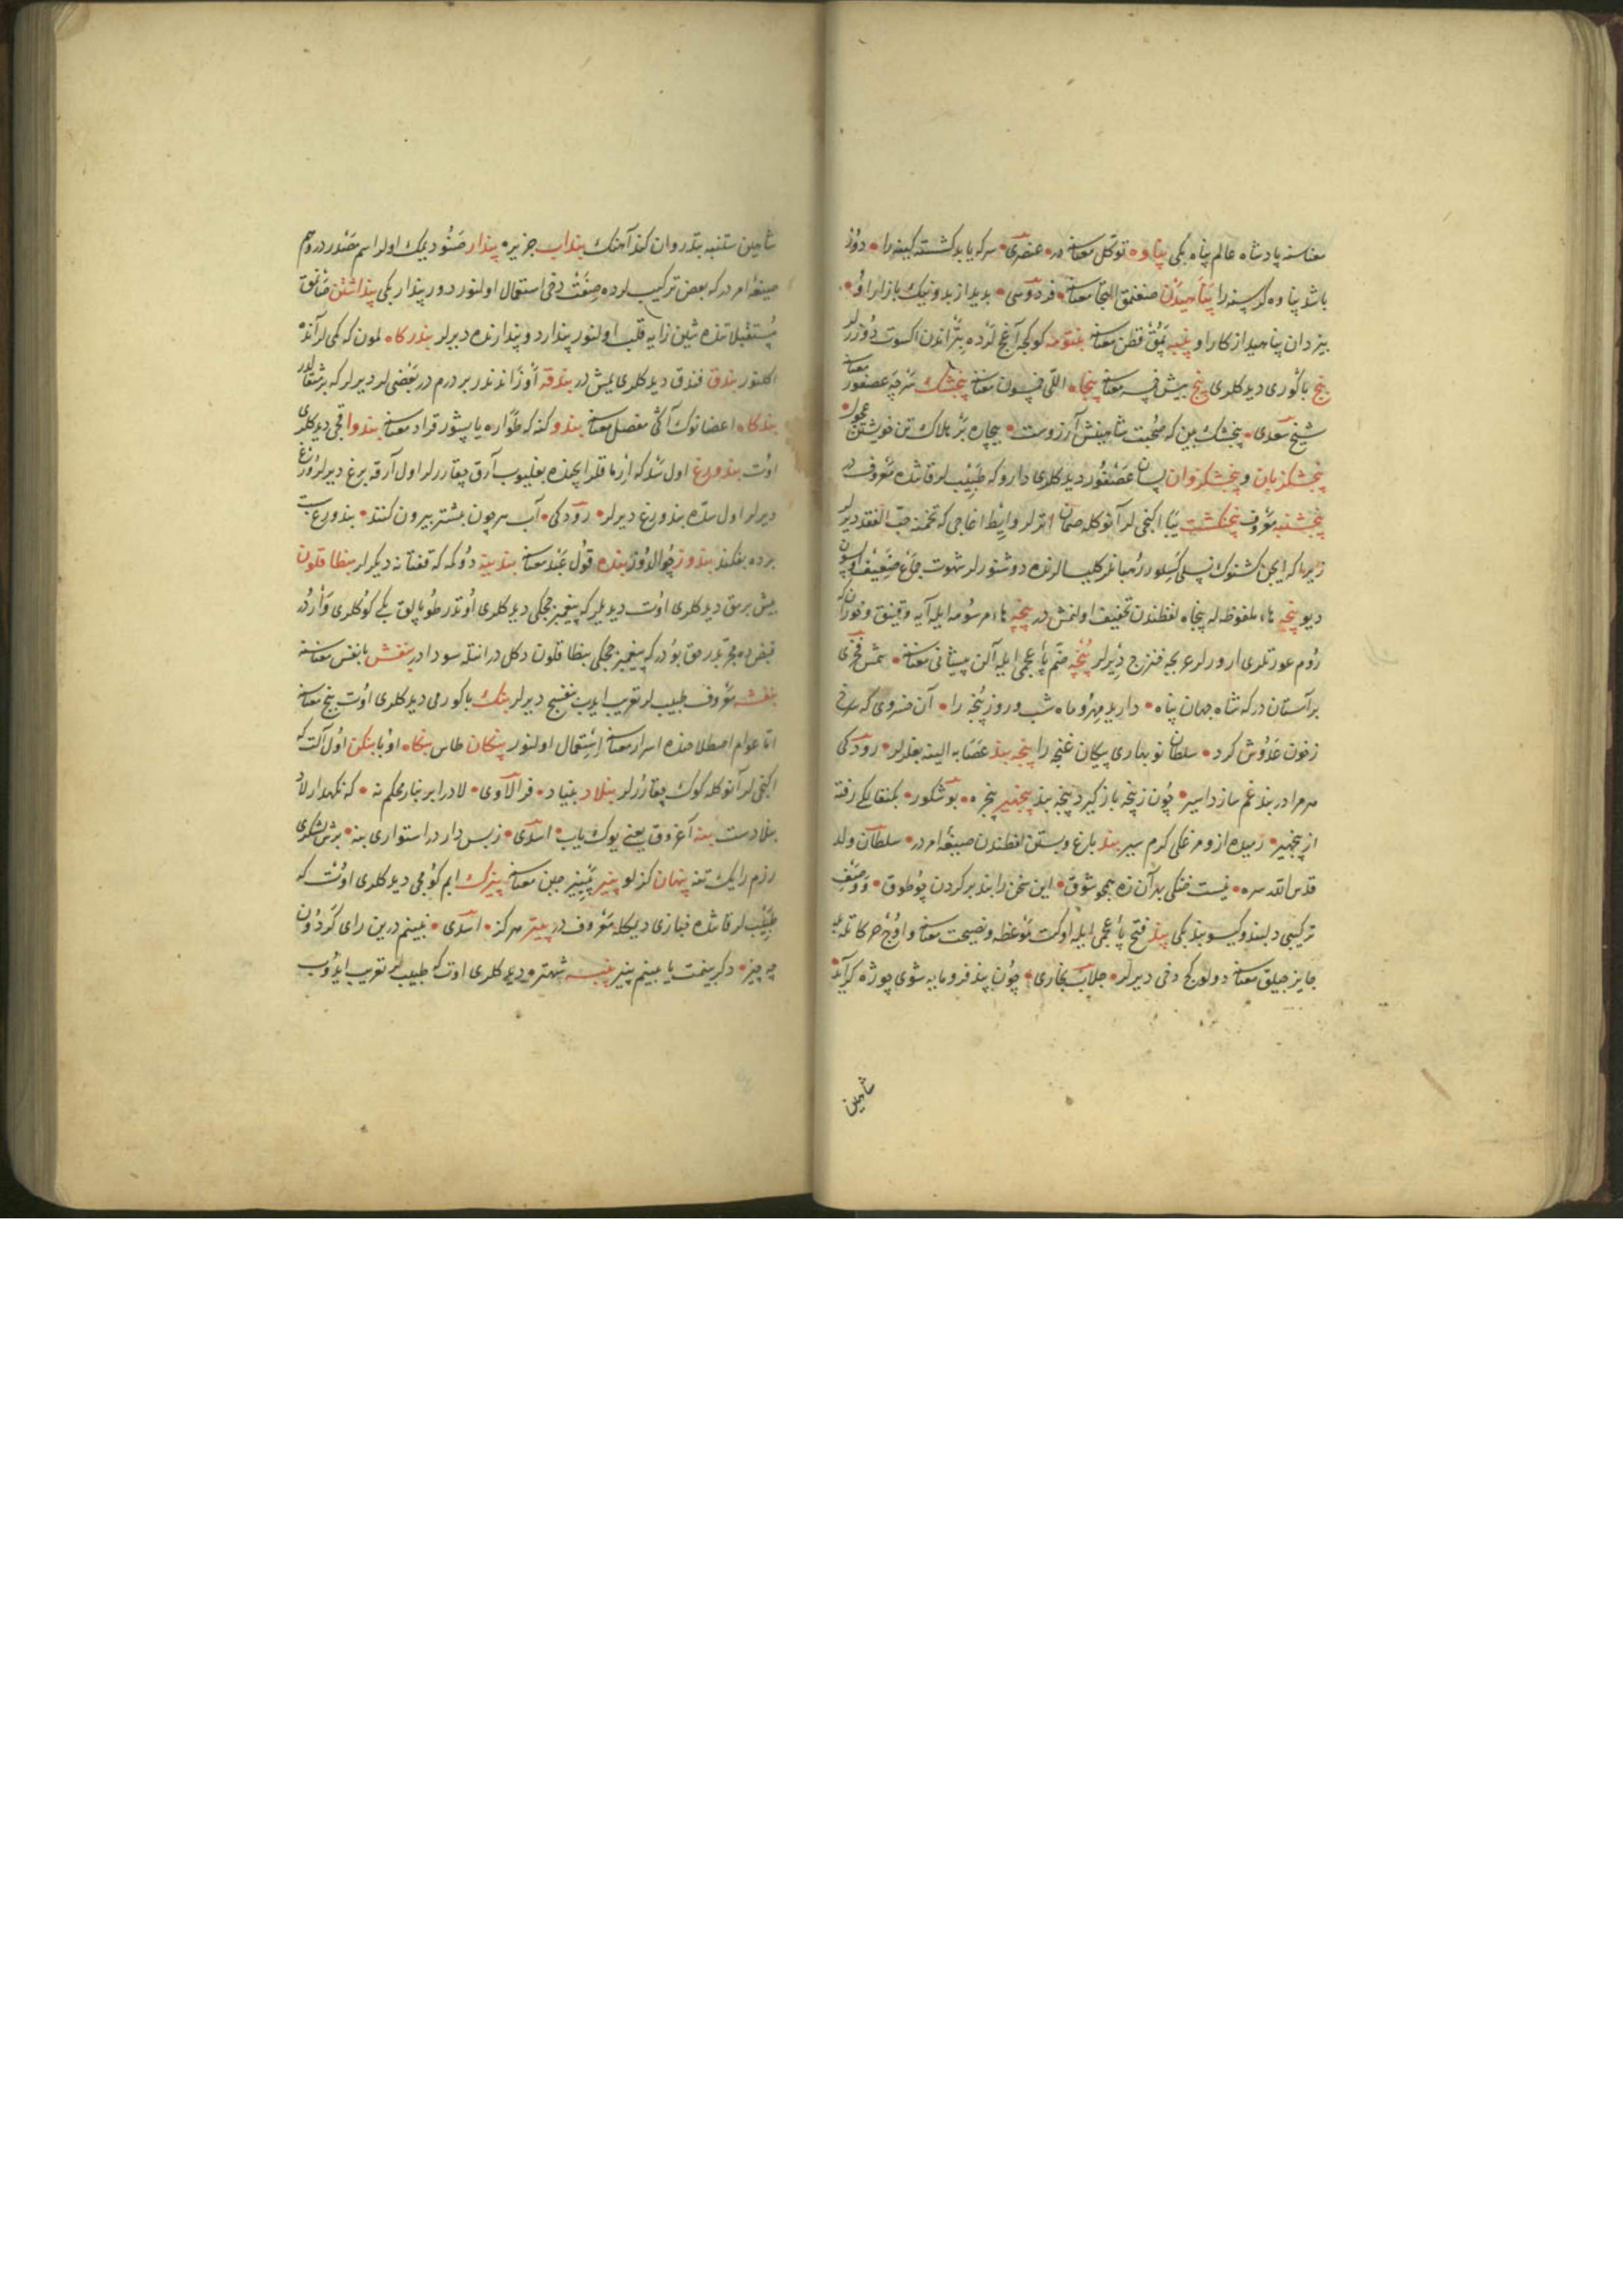 معناسنه پادشاه عالم پناه بكی پناوه توكل معناسنه در عنصری هركه یابد كشته كینه را دوز
باشد پناوه كرسنه را پناهیدن صغنمق التجا معناسنه فردوسی بدید از بد و نیك بازار اوی
بیزدان پناهید از كار اوی پنبه پمق قطن معناسنه بنتومه كوكجه آغج لرده بتر اندن اكسوت دوزرلر
بنج باكوری دیدكلری پنج بیش خمسه معناسنه پنجاه اللی خمسون معناسنه پنجشك سرچه عصفور معناسنه
شیخ سعدی پنجشك بین كه صحبت شاهینش آرزوست بیچاره بر هلاك تن خویشتن عجول
پنجشكزبان و پنجشكزوان لسان عصفور دیدكلری دارو كه طبیبلر قاتنده معروفدر
پنجشنبه معروف پنجنكشت یبا اكینجیلر آنوكله صمان آتارلر و ایط اغاجی كه تخمنه حب الفقد دیرلر
زیرا كه ایچن كشنوك نسلی كسلور رهبانلر كلیسالرنده دوشنورلر شهوت جماع ضعیف اولسون
دیو پنجه هاء ملفوظه له پنجاه لفظندن تخفیف اولنمش در پنجه هاء مرسومه ایله آیه و قینق و خوران كه
روم عورتلری ارورلر عربجه فنزج دیرلر پنجه ضم پاء عجمی ایله آلن پیشانی معناسنه شمس فخری
بر آستان دركه شاه جهان پناه دارید مهر و ماه شب و روز پنجه را آن خسروی كه سرخی
زخون عدوش كرد سلطان نوبهاری پیكان غنچه را پنجه بند عصابه الینه بغلرلر رودكی
هر مرا در بند غم سازد اسیر چون ز پنجه باز كیرد پنجه بند پنجیر پنجره بوشكور
از پنجیر رمیده از و مرغكی كرم سیر بند باغ و بستن لفظندن صیغه امر در سلطان ولد
قدس الله سره نیست خنكی بد آن زه همچو شوق این سخن را بند بر كردن چو طوق و وصف
تركیبی دلبند و كیسو بند بكی پند فتح پاء عجمی ایله اوكت موعظه و نصیحت معناسنه و اوج حركاتله
جایز چیلق معناسنه دولوركج دخی دیرلر جلاب بخاری چون پند فرومایه سوی جوژه كراید
شاهین
شاهین ستنبه بتذروان كند آهنك بنداب جزیره پندار صنو دیمك اولر اسم مصدر در و هم
صیغه امر در كه بعض تركیبلرده صفت دخی استعمال اولنور دور پندار بكی پنداشتن صانمق
مستقبلاتنده شین زایه قلب اولنور پندارد و پندارنده دیرلر بندركاه لمون كه كمی لر آنده
اكلنور بندق فندق دیدكلری یمش در بندقه اوزاندندر بر درم در بعضی لر دیرلر كه بر مثقالدر
بندكاه اعضانوك آكی مفصل معناسنه بندو كنه كه طواره یاپشور قراد معناسنه بندوا قجی دیدكلری
اوت بندورغ اول سد كه ارماقلر ایچنده بغلیوب آرق چقارلر اول آرقه برغ دیرلر ورغ
دیرلر اول سده بندورغ دیرلر رودكی آب هر چون بیشتر بیرون كنند بندورغ سست
برده بفكند بندوز چوالدوز بنده قول عبد معناسنه بندینه دوكمه كه قفتانه دیكرلر بنطافلون
بیش برمق دیدكلری اوت دیدیلر كه پیغمبر پنجكی دیدكلری اوتدر طوپالق بكی كوكلری واردر
قبضده مجربدر حق بودر كه پیغمبر پنجكی بنطافلون دكل در انتله سودا در بنفش بانفس معناسنه
بنفشه معروف طبیبلر تعریب ایدب بنفسج دیرلر بنك باكورمی دیدكلری اوت بنج معناسنه
اما عوام اصطلاحنده اسرار معناسنه استعمال اولنور پنكان طاس بنكاه اوبا بنكن اول آلت كه
اكینجیلر آنوكله كوك چقارورلر بنلاد بنیاد فرالاوی لاد را بر بنای محكم نه كه نكهدار لاد
بنلادست بنه آغروق یعنی یوك یاب اسدی زبس دار در استواری بنه بر شش لشكری
رزم را یك تنه پنهان كزلو پنیر پینیر جبن معناسنه پنیرك ابم كومجی دیدكلری اوتدر كه
طبیبلر قاتنده خبازی دیمكله معروفدر پنیز هركز اسدی نبینم درین رای كردون
چه چیز دكر پنمت یا ببینم پنیز پنیسه شهتره دیدكلری اوت كه طبیبلر تعریب ایدوب